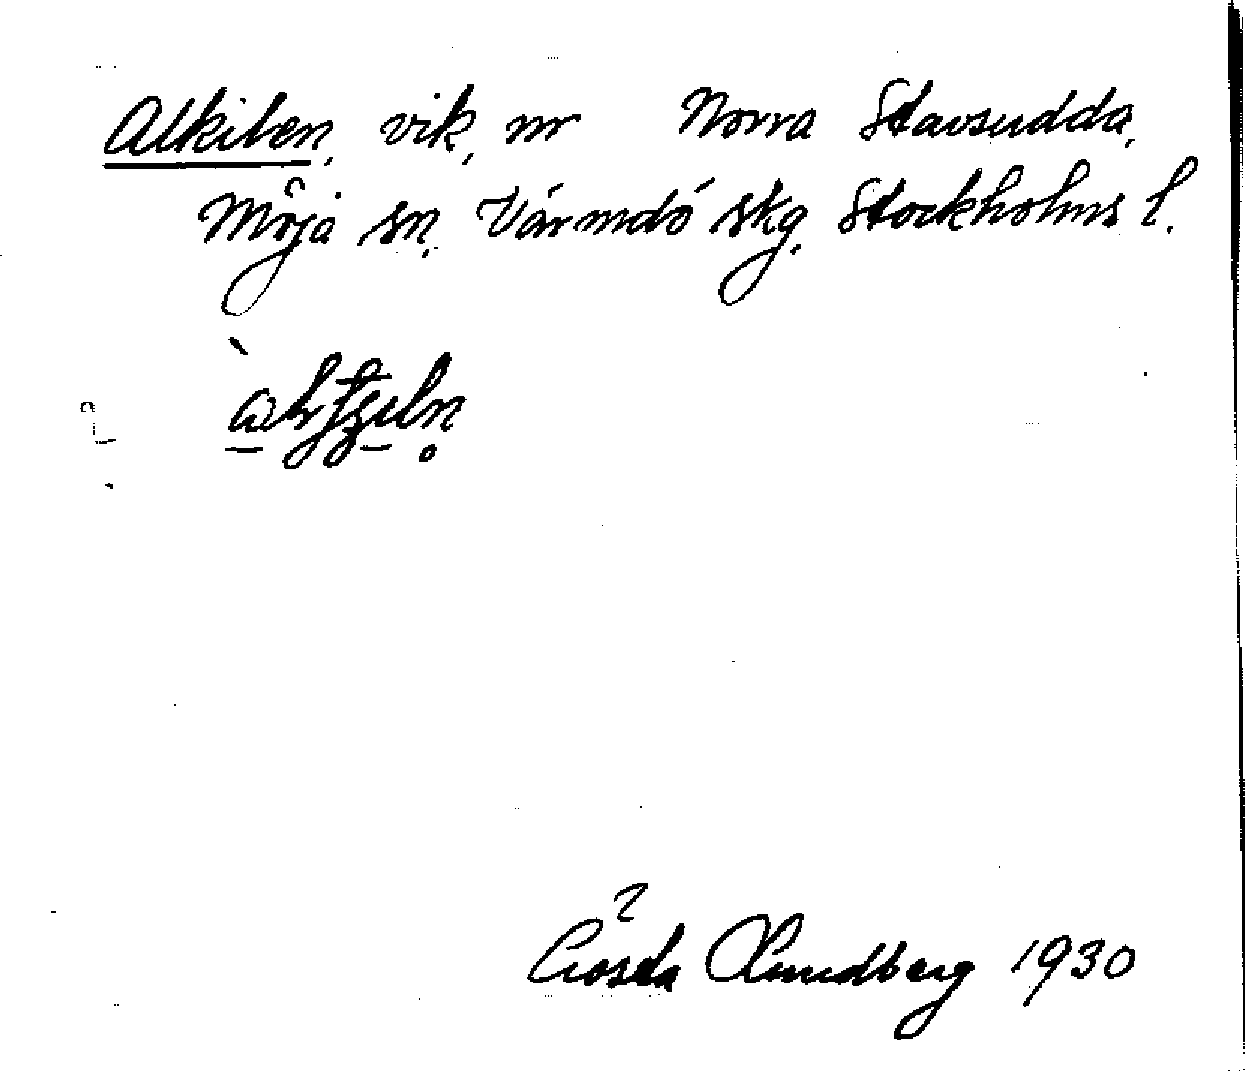 Alkilen, vik, nr Norra Stavsudda,
Möja sn, Värmdö skg, Stockholms l.
Gösta Lundberg 1930